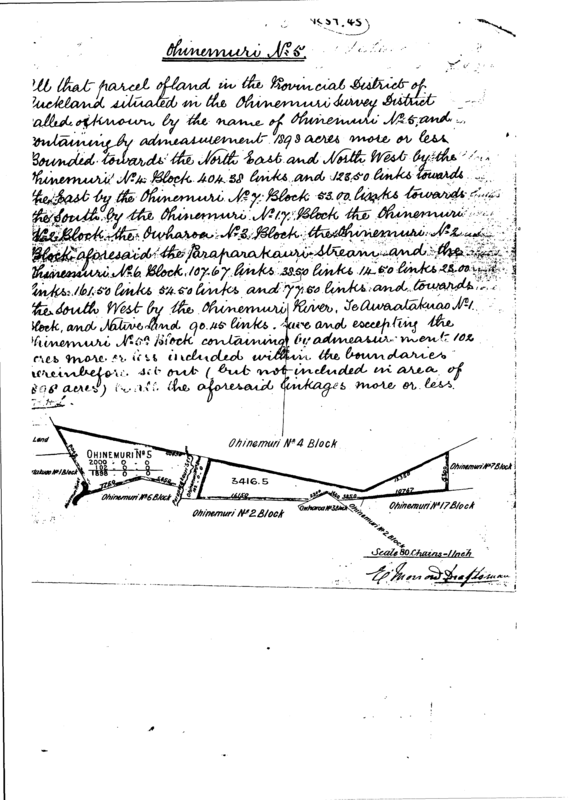 Ohinemuri No 5.
ll that parcel of land in the Provincial District of
uckland situated in the Ohinemuri Survey District
alled or known by the name of Ohinemuri No 5, and
ontaining by admeasurement 1898 acres more or less
Bounded towards the North East and North West by the
hinemuri No 4 Block 404.38 links and 123.50 links towards
the East by the Ohinemuri No 7 Block 53.00 links towards
the South by the Ohinemuri No 17 Block the Ohinemuri
Block the Owharoa No 3 Block the Ohinemuri No 2
Block aforesaid the Paraparakauri Stream and the
hinemuri No 6 Block, 107.67 links 38.50 links 14.50 links 23.00
links 161.50 links 54.50 links and 77.50 links and towards
the South West by the Ohinemuri River, Te Awaatakuao No 1
lock, and Native Land 90.45 links. Save and excepting the
hinemuri No 5A Block containing by admeasurment 102
cres more or less included within the boundaries
ereinbefore set out (but not included in area of
898 acres) all the aforesaid linkages more or less.
Ohinemuri No 4 Block
Land
OHINEMURI No 5
2000 - 0 - 0
102 - 0 - 0
1898 - 0 - 0
3416.5
Ohinemuri No 7 Block
No 1 Block
7750
5450
Ohinemuri No 6 Block
16150
Ohinemuri No 2 Block
Owharoa No 3 Block
3850
Ohinemuri No 2 Block
10767
Ohinemuri No 17 Block
Scale 80 Chains - 1 Inch
Draftsman